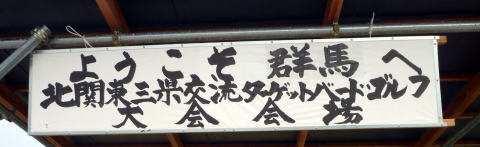 ようこそ群馬へ
北関東三県交流ターゲットバードゴルフ
大会会場